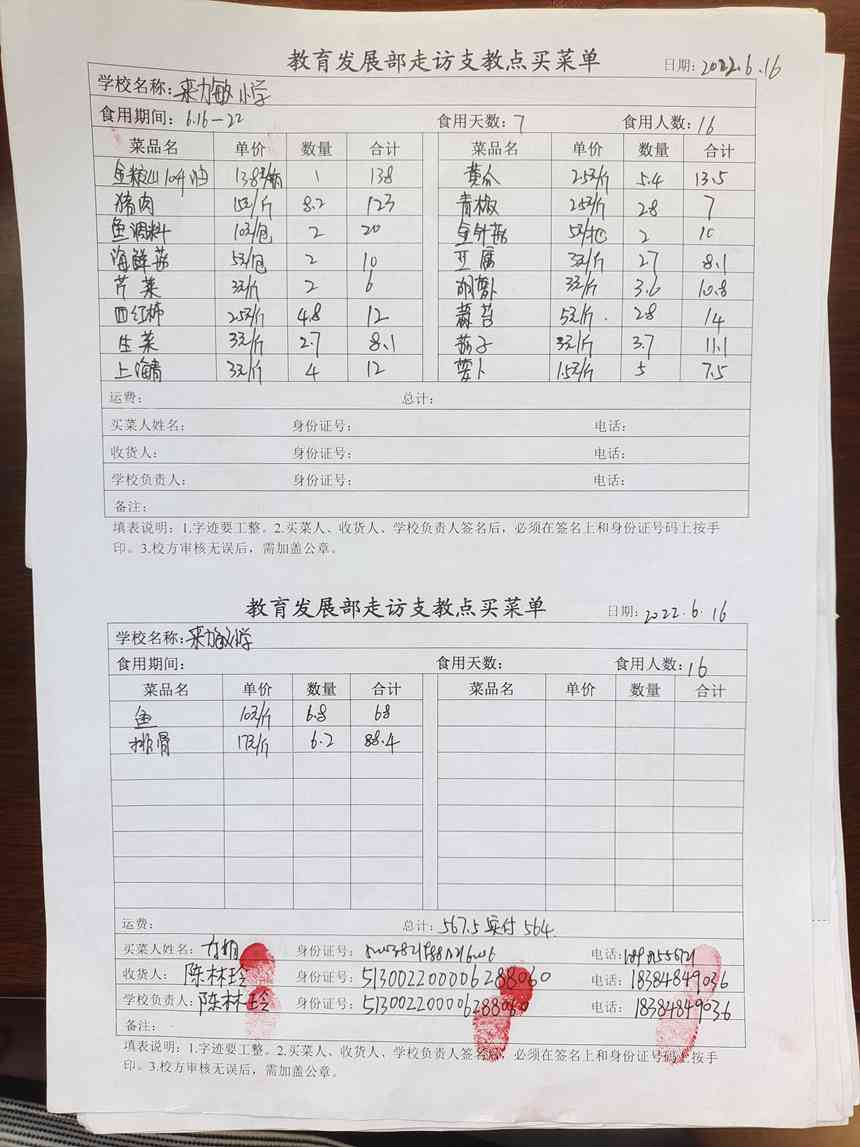 教育发展部走访支教点买菜单 日期：2022.6.16
学校名称：来力敏小学
食用期间：6.16—22 食用天数：7 食用人数：16
菜品名 单价 数量 合计 菜品名 单价 数量 合计
138 1 138 黄瓜 2.5元/斤 5.4 13.5
猪肉 15元/斤 8.2 123 青椒 2.5元/斤 2.8 7
鱼调料 10元/包 2 20 金针菇 5元/包 2 10
海鲜菇 5元/包 2 10 豆腐 3元/斤 2.7 8.1
芹菜 3元/斤 2 6 胡萝卜 3元/斤 3.6 10.8
西红柿 2.5元/斤 4.8 12 蒜苔 5元/斤 2.8 14
生菜 3元/斤 2.7 8.1 茄子 3元/斤 3.7 11.1
上海青 3元/斤 4 12 萝卜 1.5元/斤 5 7.5
运费： 总计：
买菜人姓名： 身份证号： 电话：
收货人： 身份证号： 电话：
学校负责人： 身份证号： 电话：
备注：
填表说明：1.字迹要工整。2.买菜人、收货人、学校负责人签名后，必须在签名上和身份证号码上按手
印。3.校方审核无误后，需加盖公章。
教育发展部走访支教点买菜单 日期：2022.6.16
学校名称：来力敏小学
食用期间： 食用天数： 食用人数：16
菜品名 单价 数量 合计 菜品名 单价 数量 合计
鱼 10元/斤 6.8 68
排骨 17元/斤 6.2 88.4
运费： 总计：567.5 实付564.
买菜人姓名： 身份证号： 电话：
收货人：陈林玲 身份证号：513002200006288060 电话：18384849036
学校负责人：陈林玲 身份证号：513002200006288060 电话：18384849036
备注：
填表说明：1.字迹要工整。2.买菜人、收货人、学校负责人签名后，必须在签名上和身份证号码上按手
印。3.校方审核无误后，需加盖公章。